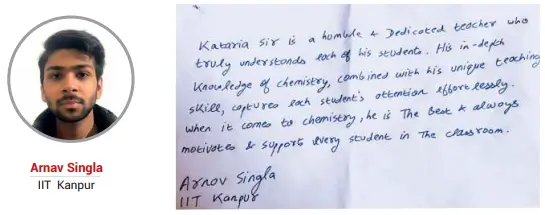 Arnav Singla
IIT Kanpur
Kataria Sir is a humble & Dedicated teacher who
truly understands each of his students. His in-depth
Knowledge of chemistry, combined with his unique teaching
skill, captures each student's attention effortlessly.
When it comes to chemistry, he is The Best & always
motivates & supports every student in The classroom.
Arnav Singla
IIT Kanpur